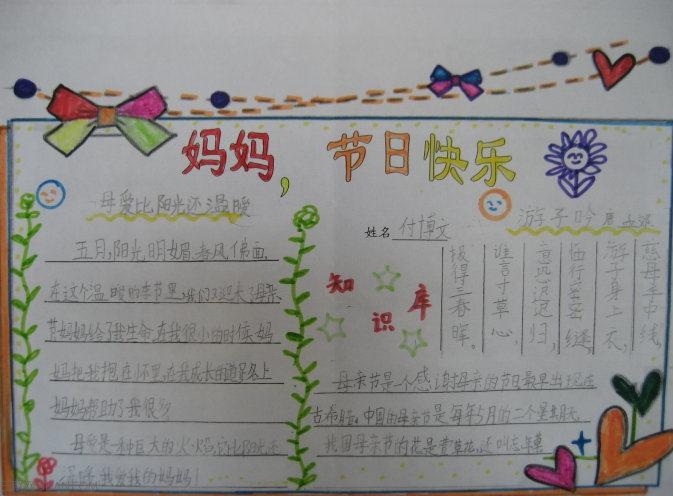 妈妈，节日快乐
母爱比阳光还温暖
五月，阳光明媚春风佛面，
在这个温暖的季节里，我们又迎来了母亲
节妈妈给了我生命在我很小的时侯妈
妈把我抱在怀里在我成长的道路上
妈妈帮助了我很多
母爱是一种巨大的火焰，它比阳光还
温暖，我爱我的妈妈！
姓名 付博文
知识库
游子吟 唐 孟郊
慈母手中线，
游子身上衣，
临行密密缝，
意恐迟迟归，
谁言寸草心，
报得三春晖。
母亲节是个感谢母亲的节日最早出现在
古希腊，中国的母亲节是每年5月的二个星期天
我国母亲节的花是萱草花，还叫忘